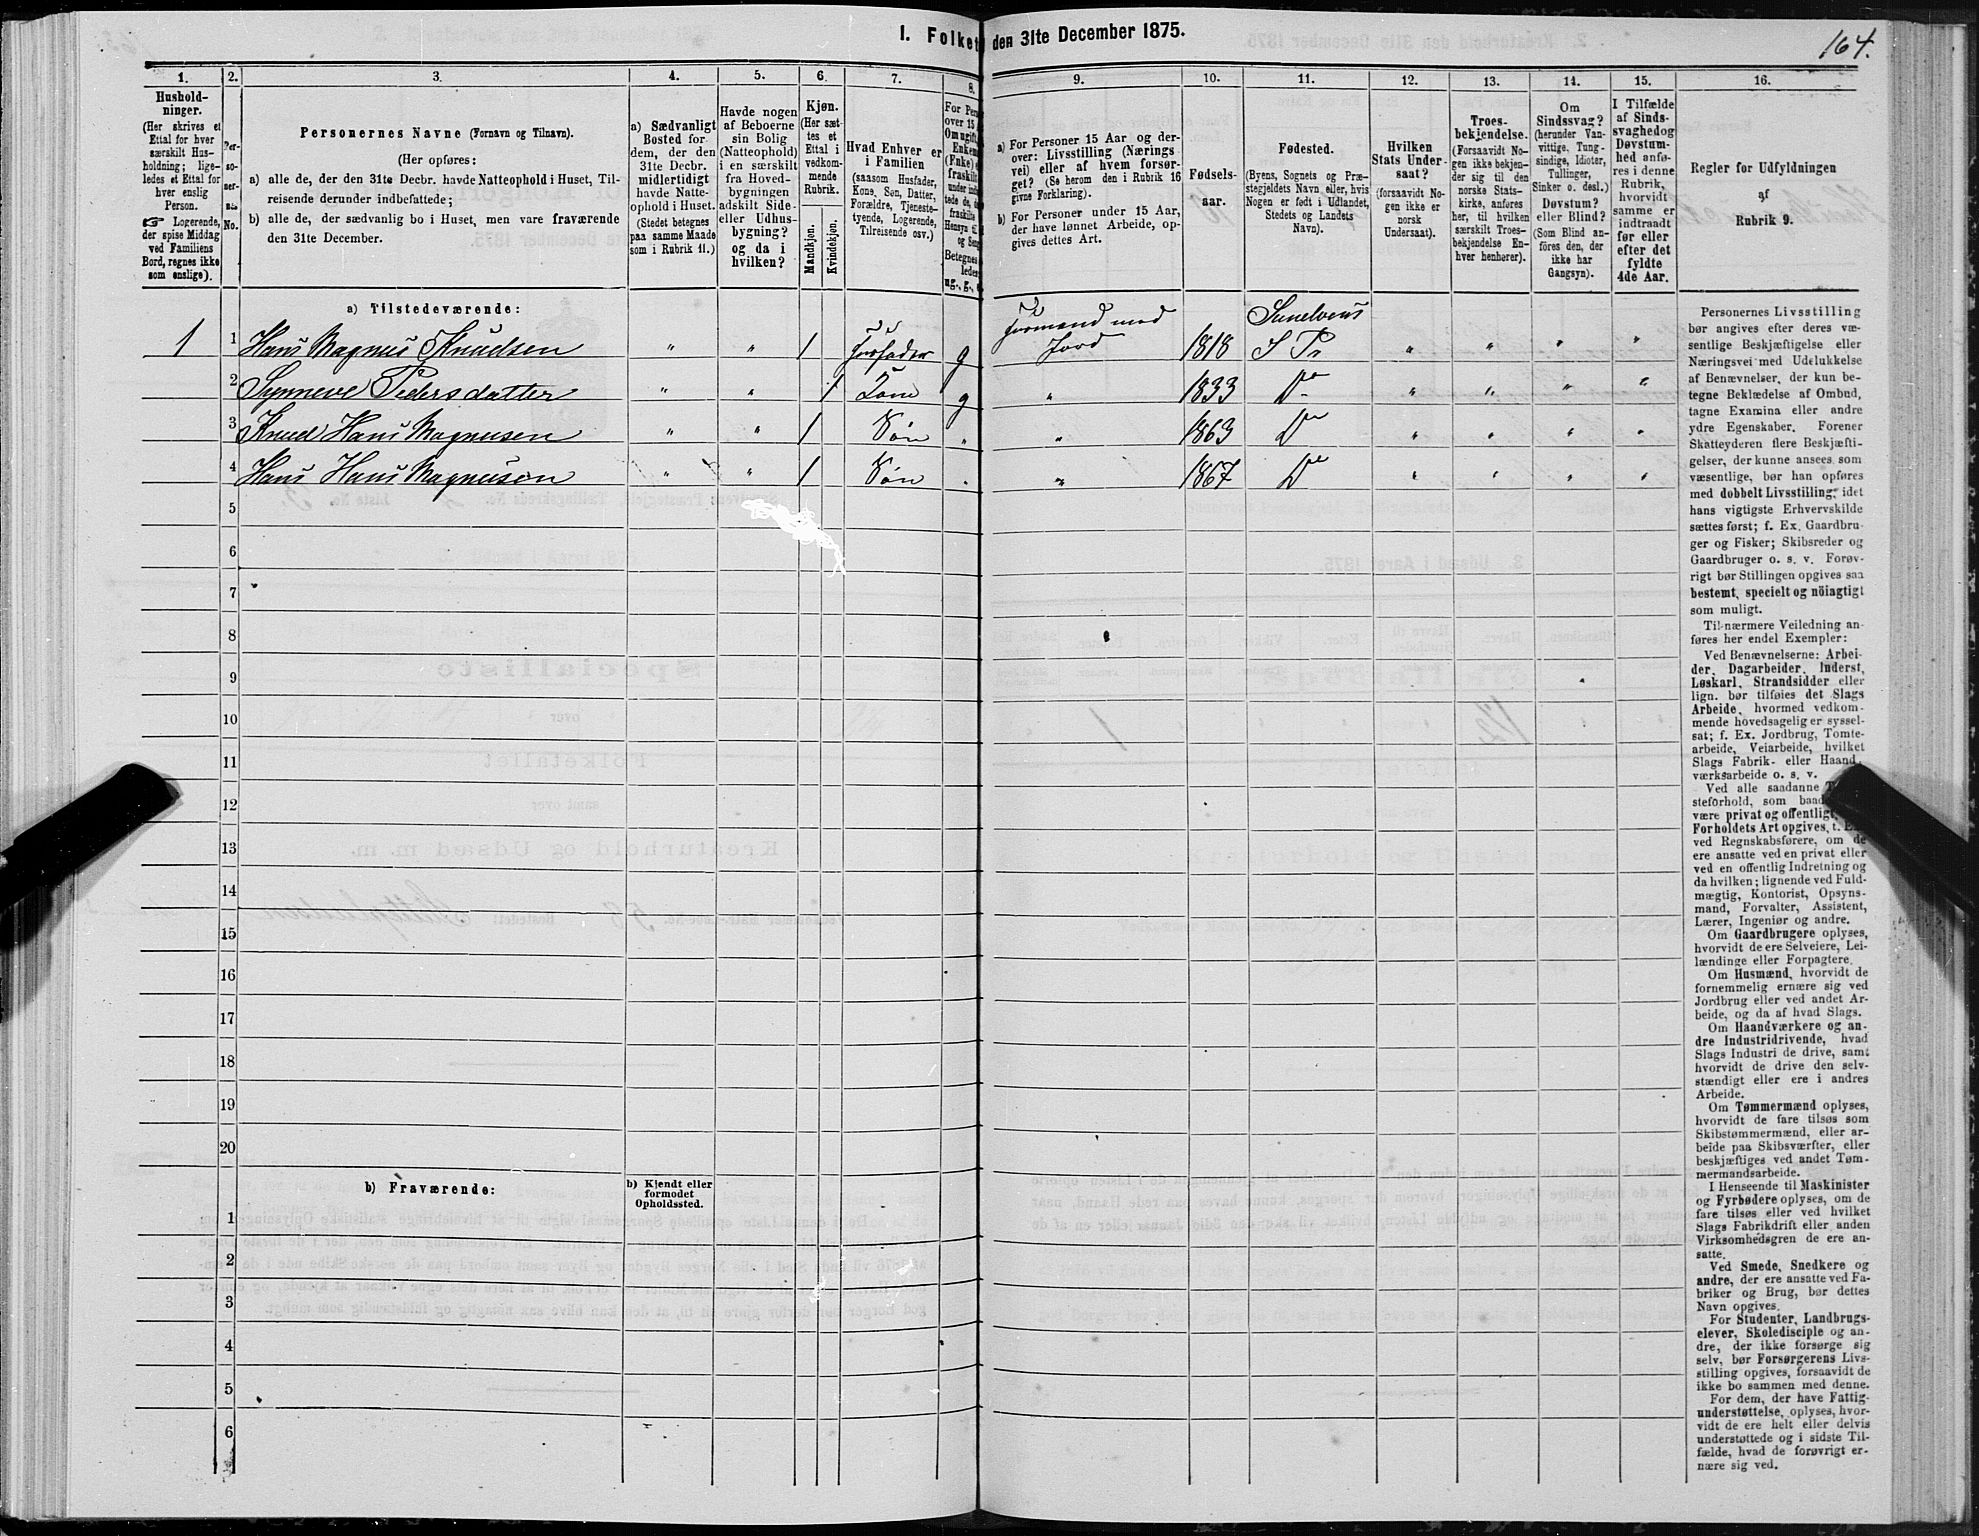 I. Folket den 31te December 1875.
164.
1.
Hushold-
ninger.
(Her skrives et
Ettal for hver
særskilt Hus-
holdning; lige-
ledes et Ettal for
hver enslig
Person.
☞ Logerende,
der spise Middag
ved Familiens
Bord, regnes ikke
som enslige).
2.
Per-
so-
ner-
nes
No.
3.
Personernes Navne (Fornavn og Tilnavn).
(Her opføres:
a) alle de, der den 31te Decbr. havde Natteophold i Huset, Til-
reisende derunder indbefattede;
b) alle de, der sædvanlig bo i Huset, men vare fraværende
den 31te December.
4.
a) Sædvanligt
Bosted for
dem, der den
31te Decbr.
midlertidigt
havde Natte-
ophold i Huset.
(Stedet betegnes
paa samme Maade
som i Rubrik 11.)
5.
Havde nogen
af Beboerne
sin Bolig
(Natteophold)
i en særskilt
fra Hoved-
bygningen
adskilt Side-
eller Udhus-
bygning?
og da i
hvilken?
6.
Kjøn.
(Her sæt-
tes et
Ettal i
vedkom-
mende
Rubrik.
Mandkjøn.
Kvindekjøn.
7.
Hvad Enhver er
i Familien
(saasom Husfader,
Kone, Søn, Datter,
Forældre, Tjeneste-
tyende, Logerende,
Tilreisende osv.)
8.
For Pers
over 15
Om ugift,
Enkem
(Fnke)
fraskilt
under ind
tede de,
fraskilte
Hensyn til
og Seng
Betegnes
ledes
ug., g., e
9.
a) For Personer 15 Aar og der-
over: Livsstilling (Nærings-
vei) eller af hvem forsør-
get? (Se herom den i Rubrik 16
givne Forklaring).
b) For Personer under 15 Aar,
der have lønnet Arbeide, op-
gives dettes Art.
10.
Fødsels-
aar.
11.
Fødested.
(Byens, Sognets og Præ-
stegjeldets Navn eller, hvis
Nogen er født i Udlandet,
Stedets og Landets
Navn).
12.
Hvilken
Stats Under-
saat?
(forsaavidt No-
gen ikke er
norsk
Undersaat).
13.
Troes-
bekjendelse.
(Forsaavidt No-
gen ikke bekjen-
der sig til den
norske Stats-
kirke, anføres
her, til hvilken
særskilt Troes-
bekjendelse En-
hver henhører).
14.
Om
Sindssvag?
(herunder Van-
vittige, Tung-
sindige, Idioter,
Tullinger,
Sinker o. desl.)
Døvstum?
eller Blind?
(Som Blind an-
føres den, der
ikke har
Gangsyn).
15.
I Tilfælde
af Sinds-
svaghed og
Døvstum-
hed anfø-
res i denne
Rubrik,
hvorvidt
samme er
indtraadt
før eller
efter det
fyldte
4de Aar.
16.
Regler for Udfyldningen
af
Rubrik 9.
a) Tilstedeværende:
1 1 Hans Magnus Knudsen " " 1 Husfader g Husmand med Jord 1818 Sunelvens S Pr " " " "
2 Synneve Pedersdatter " " 1 Kone g " 1833 Do " " " "
3 Knud Hans Magnusen " " 1 Søn " " 1863 Do " " " "
4 Hans Hans Magnusen " " 1 Søn " " 1867 Do " " " "
5
6
7
8
9
10
11
12
13
14
15
16
17
18
19
20
b) Fraværende:
b) Kjendt eller
formodet
Opholdssted.
1
2
3
4
5
6
Personernes Livsstilling
bør angives efter deres væ-
sentlige Beskjæftigelse eller
Næringsvei med Udelukkelse
af Benævnelser, der kun be-
tegne Beklædelse af Ombud,
tagne Examina eller andre
ydre Egenskaber. Forener
Skatteyderen flere Beskjæfti-
gelser, der kunne ansees som
væsentlige, bør han opføres
med dobbelt Livsstilling, idet
hans vigtigste Erhvervskilde
sættes først; f. Ex. Gaardbru-
ger og Fisker; Skibsreder og
Gaardbruger o. s. v. Forøv-
rigt bør Stillingen opgives saa
bestemt, specielt og nöiagtigt
som muligt.
Til nærmere Veiledning an-
føres her endel Exempler:
Ved Benævnelserne: Arbei-
der, Dagarbeider, Inderst,
Løskarl, Strandsidder eller
lign. bør tilføies det Slags
Arbeide, hvormed vedkom-
mende hovedsagelig er syssel-
sat; f. Ex. Jordbrug, Tomte-
arbeide, Veiarbeide, hvilket
Slags Fabrik- eller Haand-
værksarbeide o. s. v.
Ved alle saadanne
steforhold, som baade
være privat og offentligt,
Forholdets Art opgives, t. Ex.
ved Regnskabsførere, om de
ere ansatte ved en privat eller
ved en offentlig Indretning og
da hvilken; lignende ved Fuld-
mægtig, Kontorist, Opsyns-
mand, Forvalter, Assistent,
Lærer, Ingeniør og andre.
Om Gaardbrugere oplyses,
hvorvidt de ere Selveiere, Lei-
lændinge eller Forpagtere.
Om Husmænd, hvorvidt de
fornemmelig ernære sig ved
Jordbrug eller ved andet Ar-
beide, og da af hvad Slags.
Om Haandværkere og an-
dre Industridrivende, hvad
Slags Industri de drive, samt
hvorvidt de drive den selv-
stændigt eller ere i andres
Arbeide.
Om Tømmermænd oplyses,
hvorvidt de fare tilsøs som
Skibstømmermænd, eller ar-
beide paa Skibsværfter, eller
beskjæftiges ved andet Tøm-
mermandsarbeide.
I Henseende til Maskinister
og Fyrbødere oplyses, om de
fare tilsøs eller ved hvilket
Slags Fabrikdrift eller anden
Virksomhedsgren de ere an-
satte.
Ved Smede, Snedkere og
andre, der ere ansatte ved Fa-
briker og Brug, bør dettes
Navn opgives.
For Studenter, Landbrugs-
elever, Skoledisciple og an-
dre, der ikke forsørge sig
selv, bør Forsørgerens Livs-
stilling opgives, forsaavidt de
ikke bo sammen med denne.
For dem, der have Fattig-
understøttelse, oplyses, hvor-
vidt de ere helt eller delvis
understøttede og i sidste Til-
fælde, hvad de forøvrigt er-
nære sig ved.